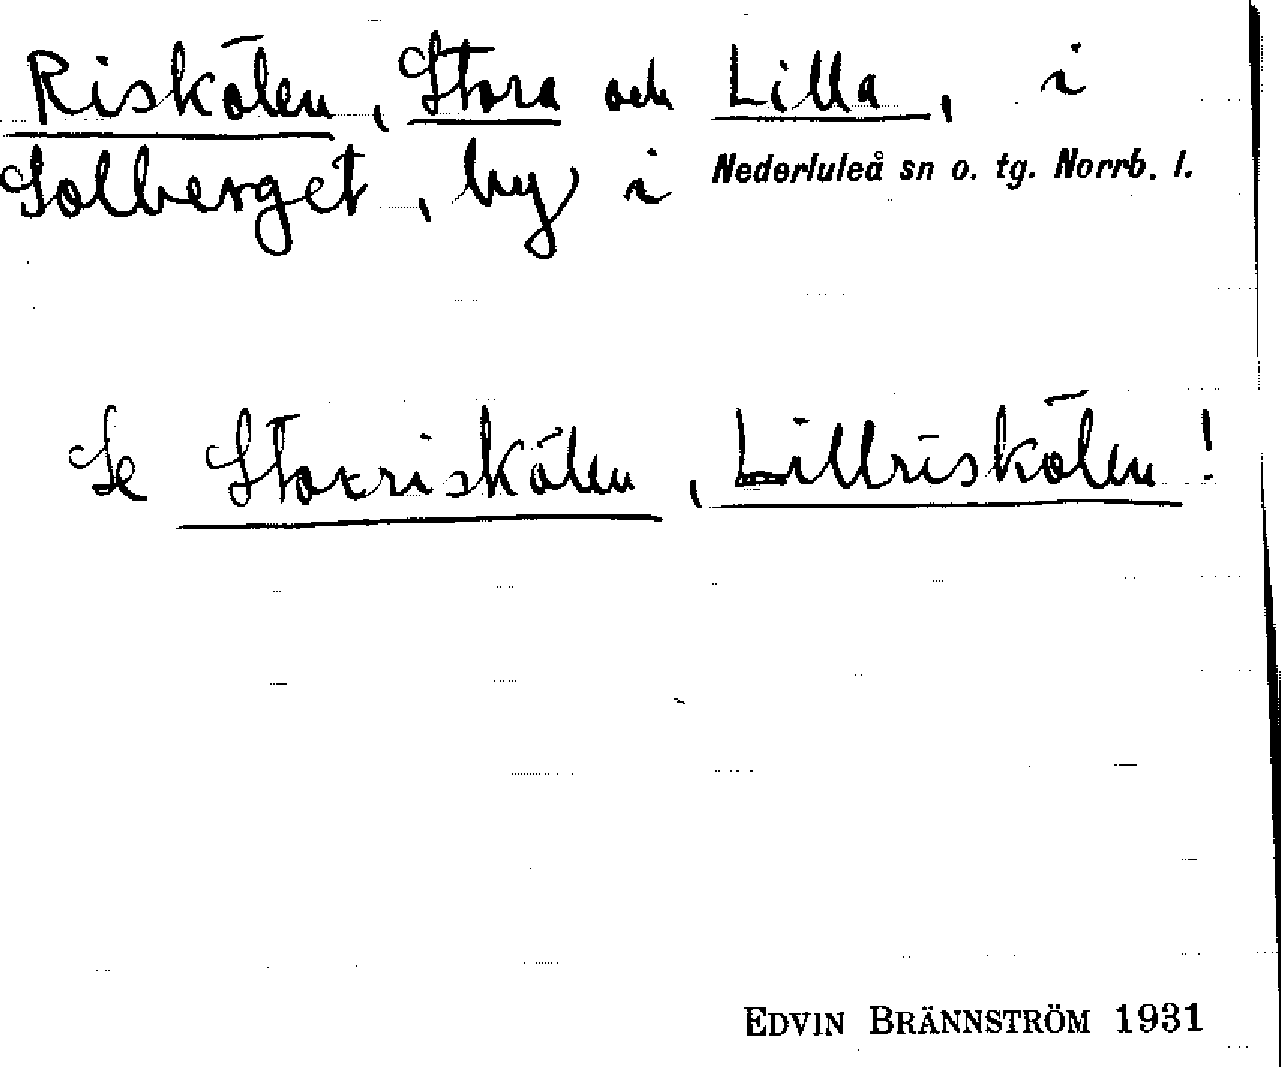 Riskölen, Stora och Lilla, i
Solberget, by i Nederluleå sn o. tg. Norrb. l.
Se Storriskölen, Lillriskölen!
EDVIN BRÄNNSTRÖM 1931